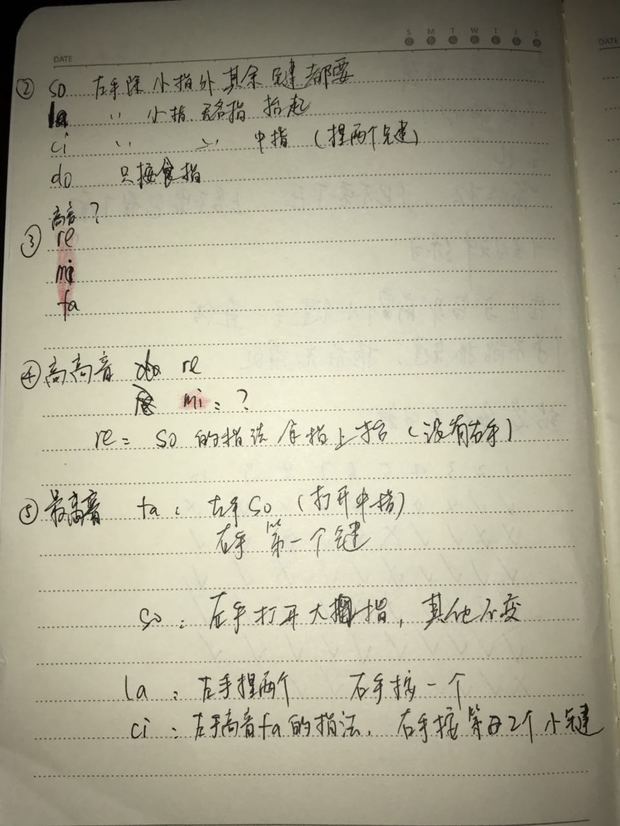 DATE
S M T W T F S
DATE
② so 左手除小指外其余键都要
la 〃 小指无名指抬起
ci 〃 〃 中指（捏两个键）
do 只按食指
高音？
③ re
mi
fa
④ 高高音 re
mi = ?
re = so 的指法 食指上抬（没有右手）
⑤ 最高音 fa: 左手so（打开中指）
右手 第一个键
so: 左手打开大拇指，其他不变
la: 左手捏两个 右手按一个
ci: 左手高音fa的指法，右手按第2个小键